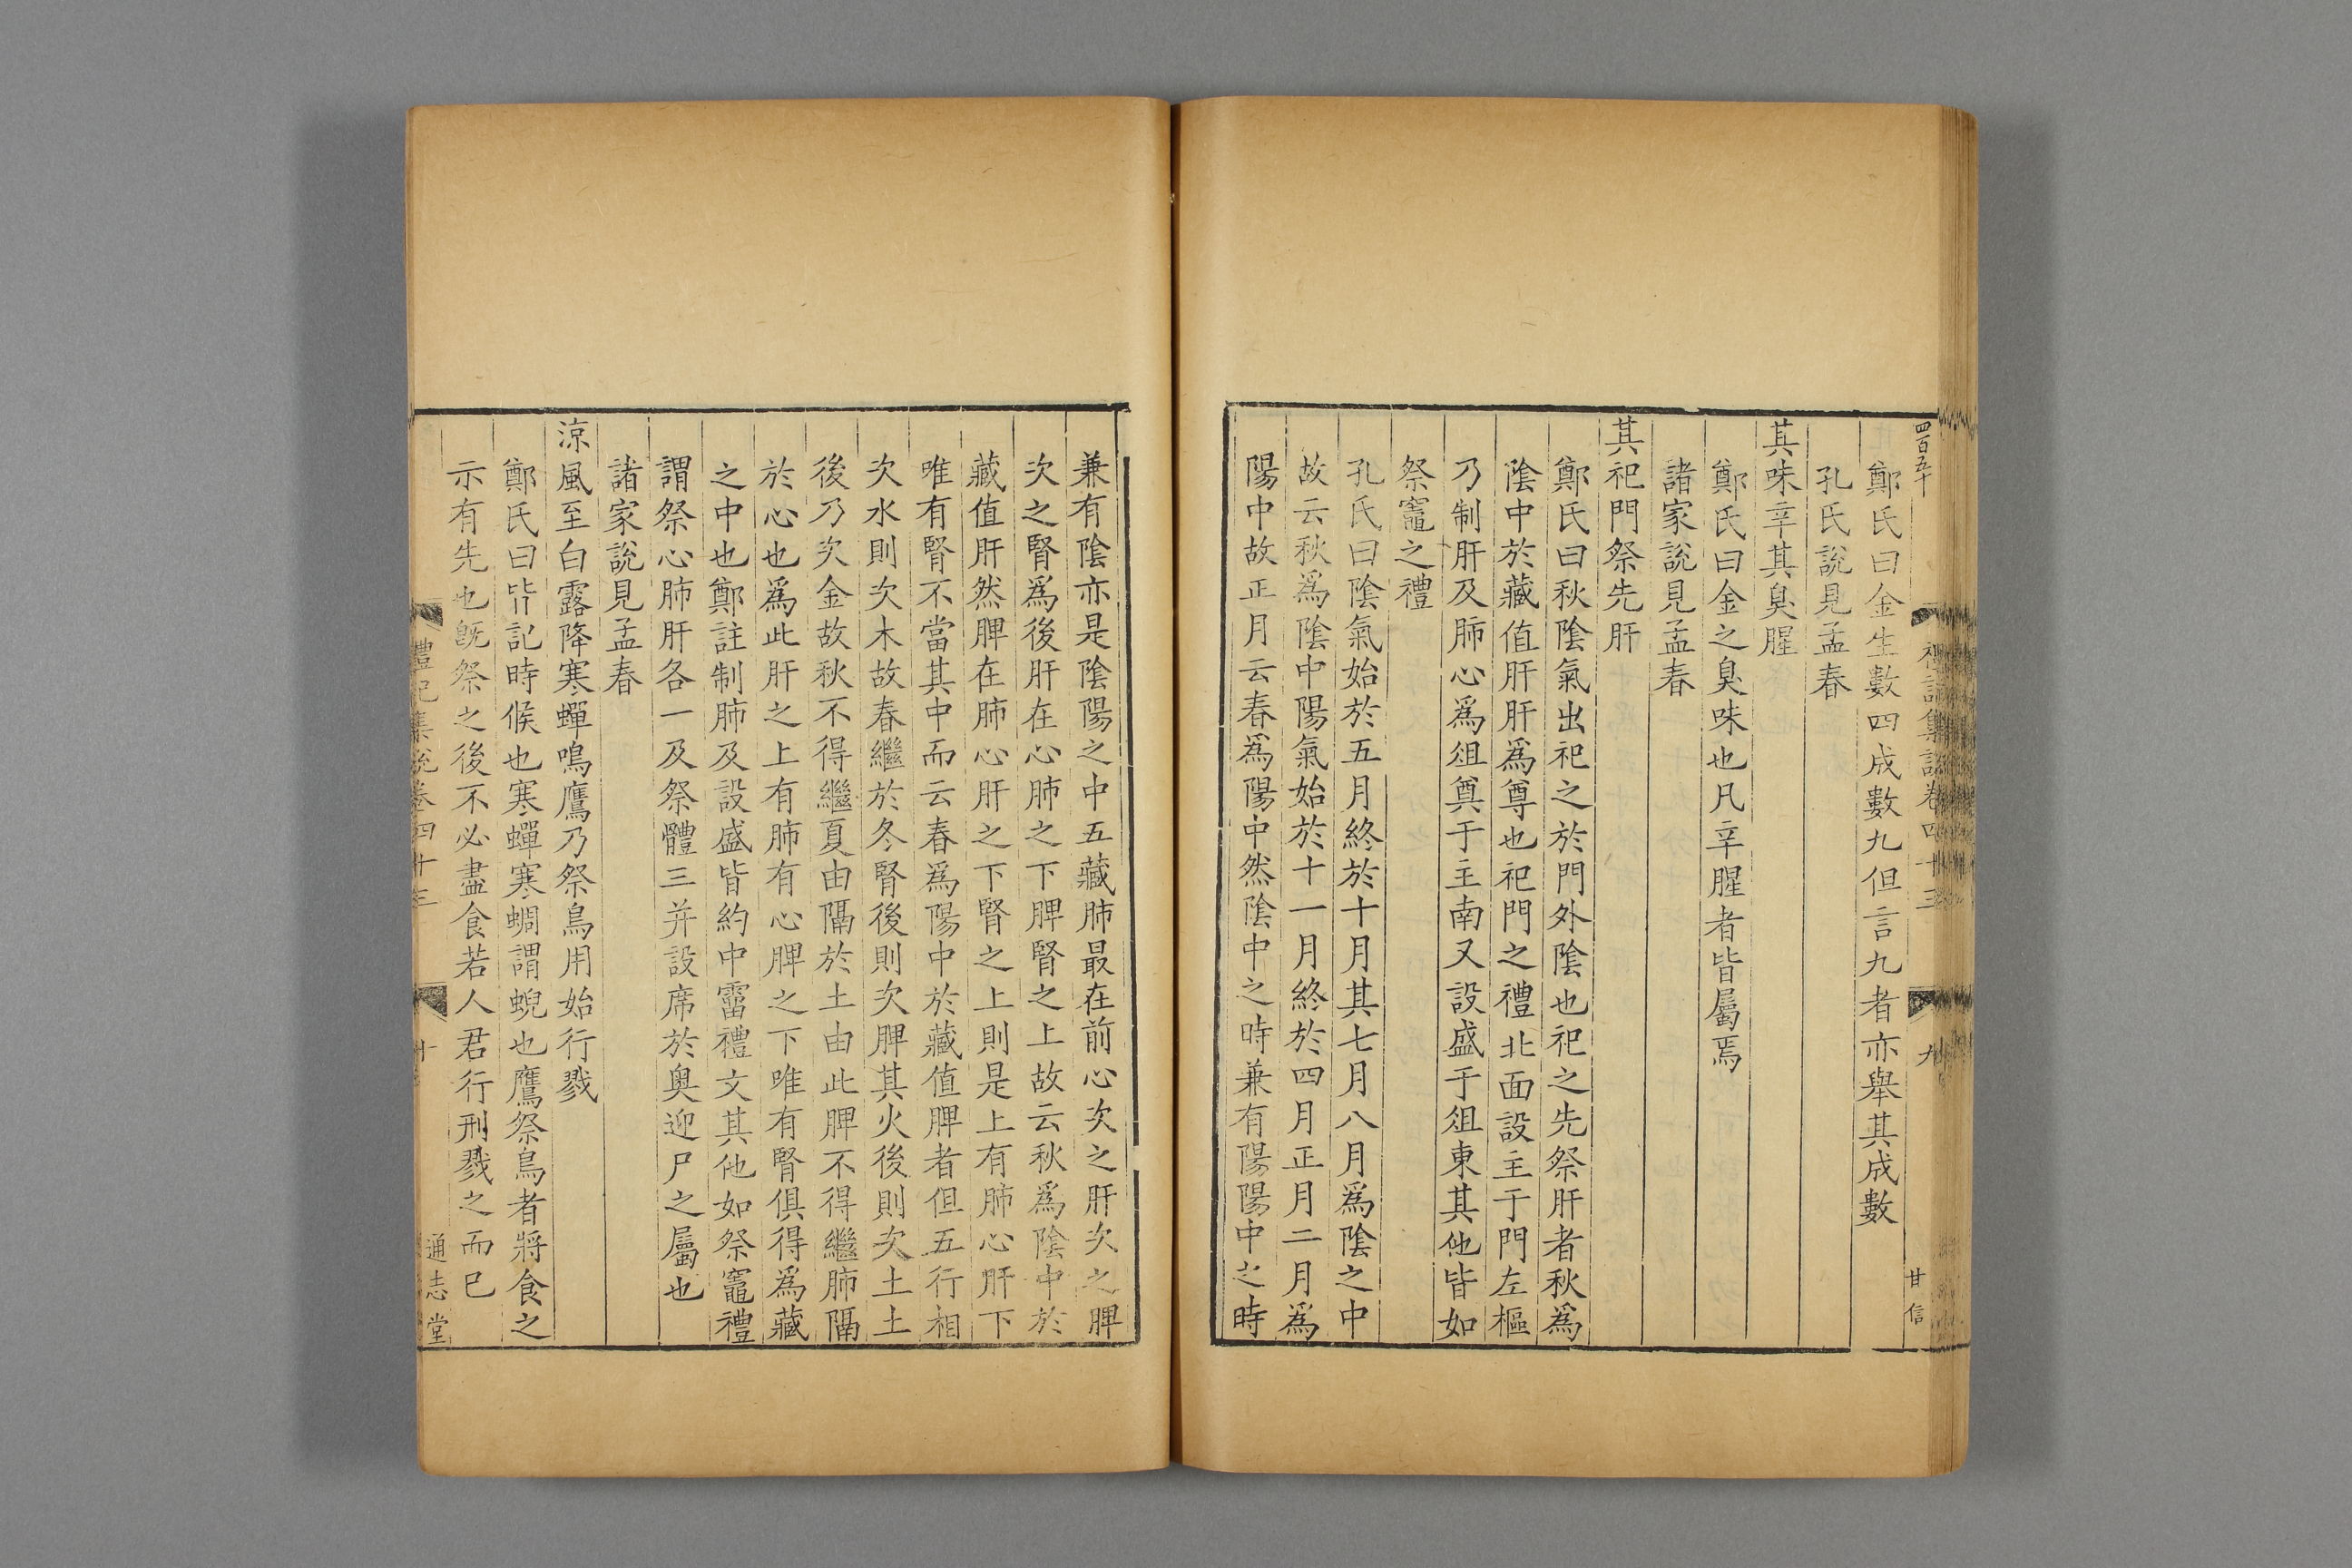 四百五十
禮記集說卷四十三
九
甘信
鄭氏曰金生數四成數九但言九者亦舉其成數
孔氏說見孟春
其味辛其臭腥
鄭氏曰金之臭味也凡辛腥者皆屬焉
諸家說見孟春
其祀門祭先肝
鄭氏曰秋陰氣出祀之於門外陰也祀之先祭肝者秋爲
陰中於藏值肝肝爲尊也祀門之禮北面設主于門左樞
乃制肝及肺心爲俎奠于主南又設盛于俎東其他皆如
祭竈之禮
孔氏曰陰氣始於五月終於十月其七月八月爲陰之中
故云秋爲陰中陽氣始於十一月終於四月正月二月爲
陽中故正月云春爲陽中然陰中之時兼有陽陽中之時
兼有陰亦是陰陽之中五藏肺最在前心次之肝次之脾
次之腎爲後肝在心肺之下脾腎之上故云秋爲陰中於
藏值肝然脾在肺心肝之下腎之上則是上有肺心肝下
唯有腎不當其中而云春爲陽中於藏值脾者但五行相
次水則次木故春繼於冬腎後則次脾其火後則次土土
後乃次金故秋不得繼夏由隔於土由此脾不得繼肺隔
於心也爲此肝之上有肺有心脾之下唯有腎俱得爲藏
之中也鄭註制肺及設盛皆約中霤禮文其他如祭竈禮
謂祭心肺肝各一及祭體三并設席於奧迎尸之屬也
諸家說見孟春
涼風至白露降寒蟬鳴鷹乃祭鳥用始行戮
鄭氏曰皆記時候也寒蟬寒蜩謂蜺也鷹祭鳥者將食之
示有先也旣祭之後不必盡食若人君行刑戮之而已
禮記集說卷四十三
十
通志堂